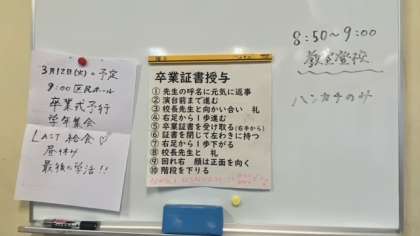 3月12日(火)の予定
9:00 区民ホール
卒業式予行
学年集会
LAST 給食♡
昼休み
最後の学活!!
卒業証書授与
① 先生の呼名に元気に返事
② 演台前まで進む
③ 校長先生と向かい合い 礼
④ 右足から1歩進む
⑤ 卒業証書を受け取る(右手から)
⑥ 証書を閉じて左わきに持つ
⑦ 右足から1歩下がる
⑧ 校長先生と 礼
⑨ 回れ右 顔は正面を向く
⑩ 階段を下りる
8:50~9:00
教室登校
ハンカチのみ